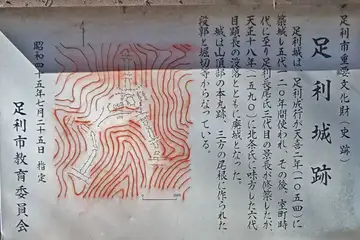 足利市重要文化財(史跡)
足利城跡
足利城は、足利成行が天喜二年(一〇五四)に
築城し五代一二〇年間使われ、その後、室町時
代に至り足利長尾氏三代目の景長が修築したが
天正十八年(一五九〇)に北条氏に味方した六代
目顕長の没落とともに廃城となった。
城は山頂部の本丸跡、三方の尾根に作られた
段郭と堀切等からなっている。
昭和四十五年七月二十五日 指定
足利市教育委員会